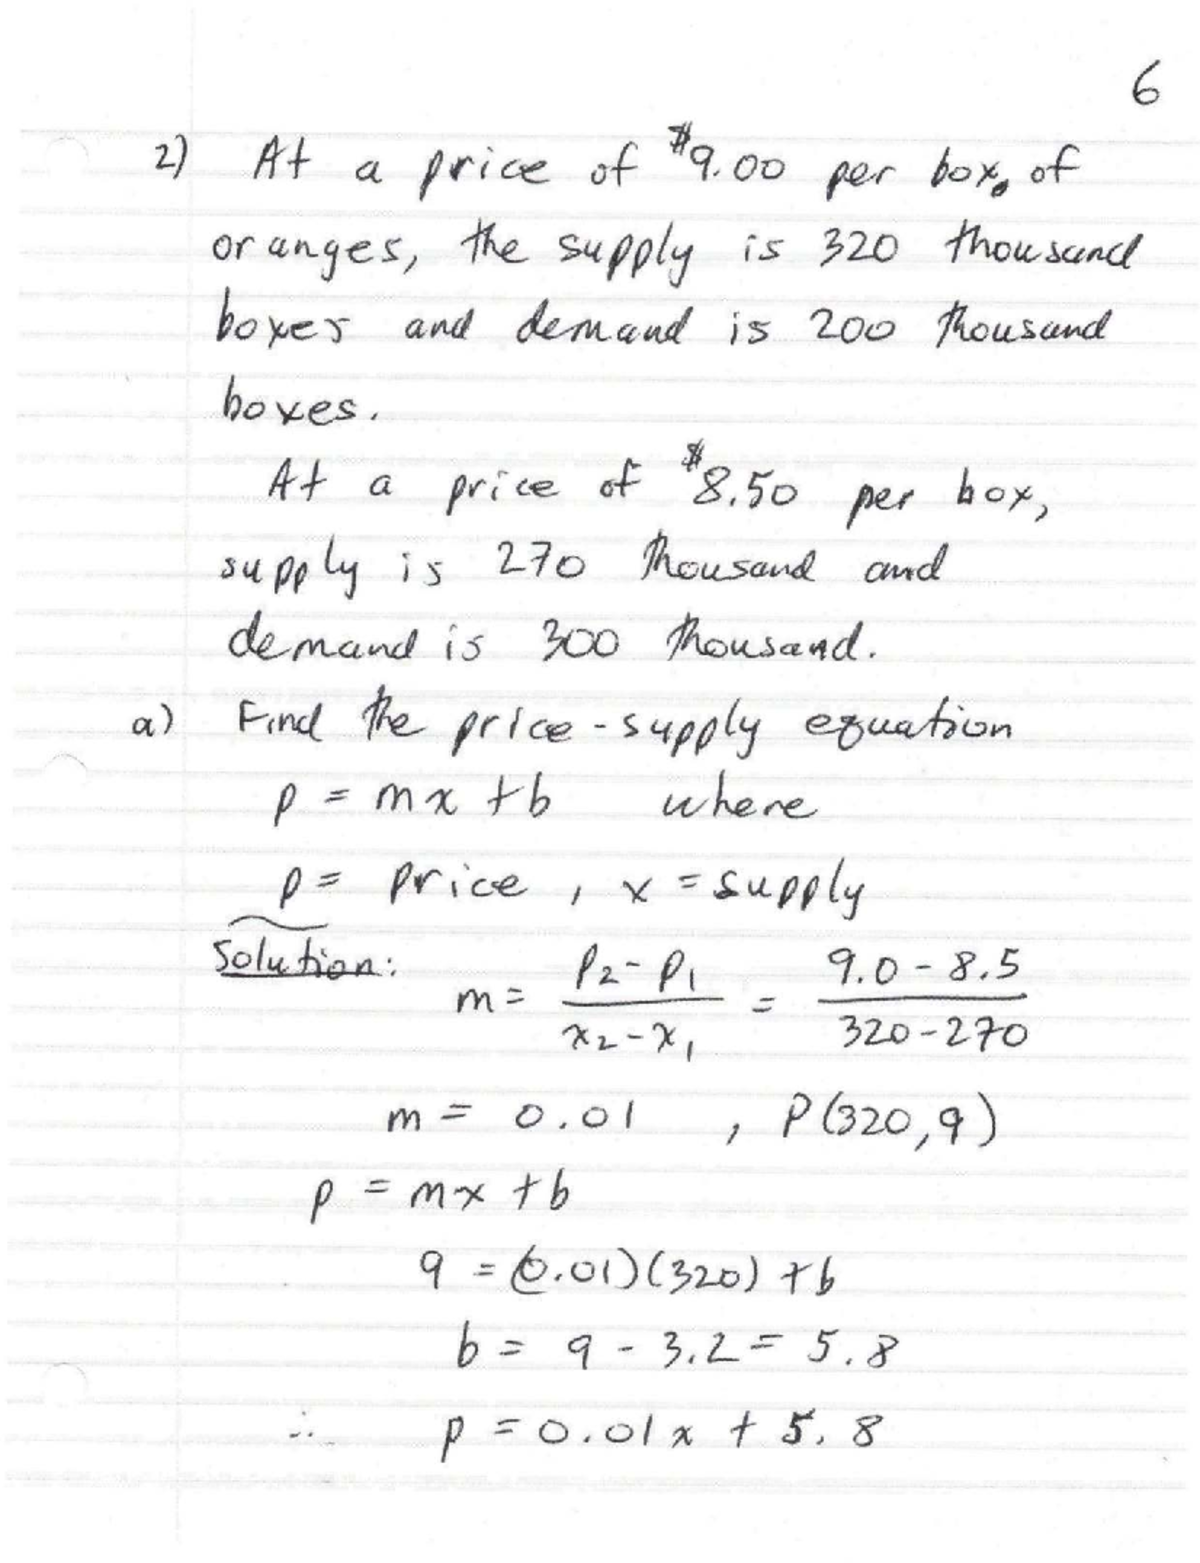 6
2) At a price of $9.00 per box, of
oranges, the supply is 320 thousand
boxes and demand is 200 thousand
boxes.
At a price of $8.50 per box,
supply is 270 thousand and
demand is 300 thousand.
a) Find the price-supply equation
p = mx + b where
p = price, x = supply
Solution:
m = (p₂ - p₁)/(x₂ - x₁) = (9.0 - 8.5)/(320 - 270)
m = 0.01 , P(320,9)
p = mx + b
9 = (0.01)(320) + b
b = 9 - 3.2 = 5.8
∴ p = 0.01x + 5.8